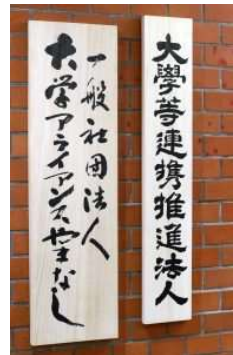 大學等連携推進法人
一般社団法人
大学アライアンスやまなし